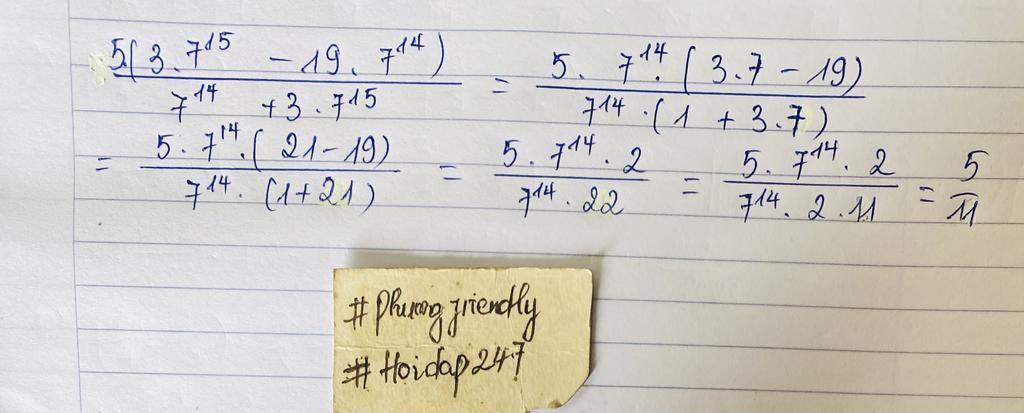 5.(3.7¹⁵ - 19.7¹⁴) / 7¹⁴ + 3.7¹⁵ = 5.7¹⁴.(3.7 - 19) / 7¹⁴.(1 + 3.7)
= 5.7¹⁴.(21 - 19) / 7¹⁴.(1 + 21) = 5.7¹⁴.2 / 7¹⁴.22 = 5.7¹⁴.2 / 7¹⁴.2.11 = 5 / 11
# Phuong friendly
# Hoidap247